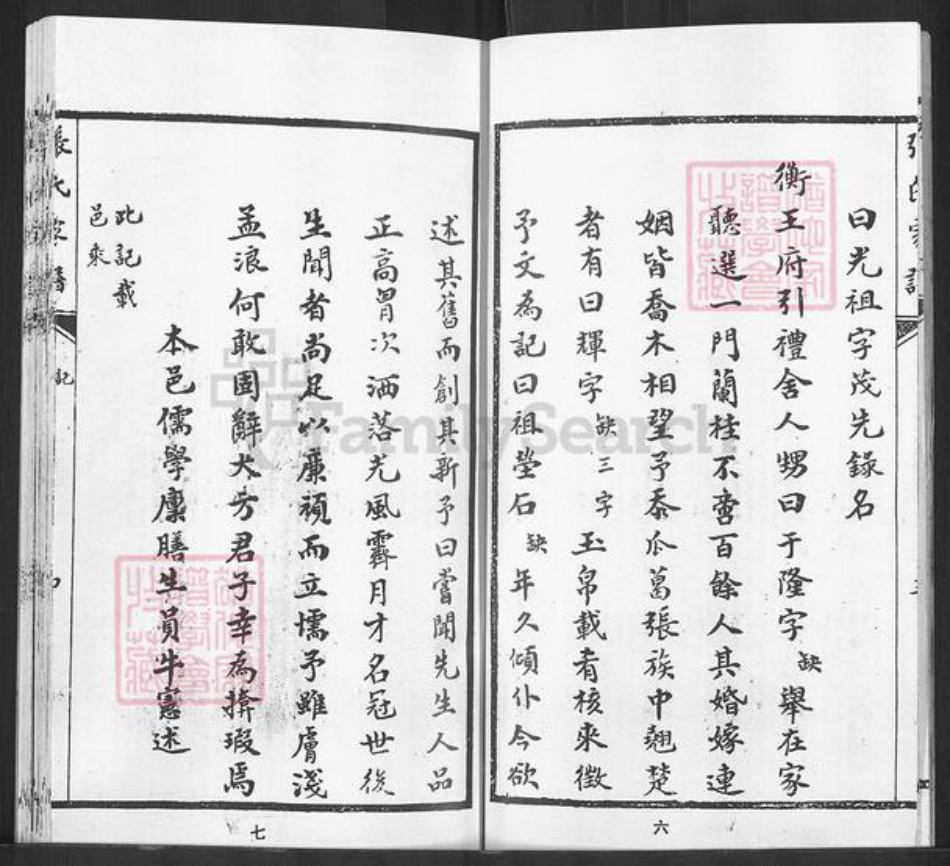 曰光祖字茂先錄名
衡王府引禮舍人甥曰于隆字缺舉在家
聽選一門蘭桂不啻百餘人其婚嫁連
姻皆喬木相望予忝瓜葛張族中翹楚
者有曰輝字缺三字玉帛載肴核來徵
予文為記曰祖塋石缺年久傾仆今欲
六
述其舊而創其新予曰嘗聞先生人品
正高胷次洒落光風霽月才名冠世後
生聞者尚足以廉頑而立懦予雖膚淺
孟浪何敢固辭大方君子幸為揜瑕焉
本邑儒學廩膳生員牛憲述
此記載
邑乘
張氏家譜
記
七
FamilySearch